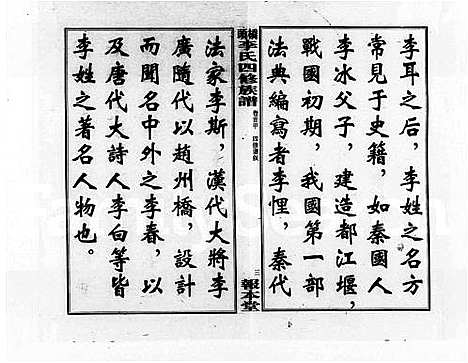 李耳之后，李姓之名方
常見于史籍，如秦國人
李冰父子，建造都江堰，
戰國初期，我國第一部
法典編寫者李悝，秦代
李氏四修族譜
三
報本堂
法家李斯，漢代大將李
廣隨代以趙州橋，設計
而聞名中外之李春，以
及唐代大詩人李白等皆
李姓之著名人物也。